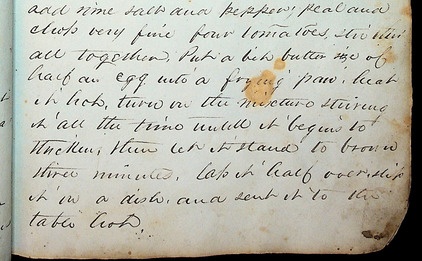 add some salt and pepper, peal and
chop very fine four tomatoes, stir this
all together. Put a bit butter size of
half an egg into a frying pan, heat
it hot, turn in the mixture stirring
it all the time untill it begins to
thicken, then let it stand to brown
three minutes. lap it half over slip
it in a dish, and sent it to the
table hot.